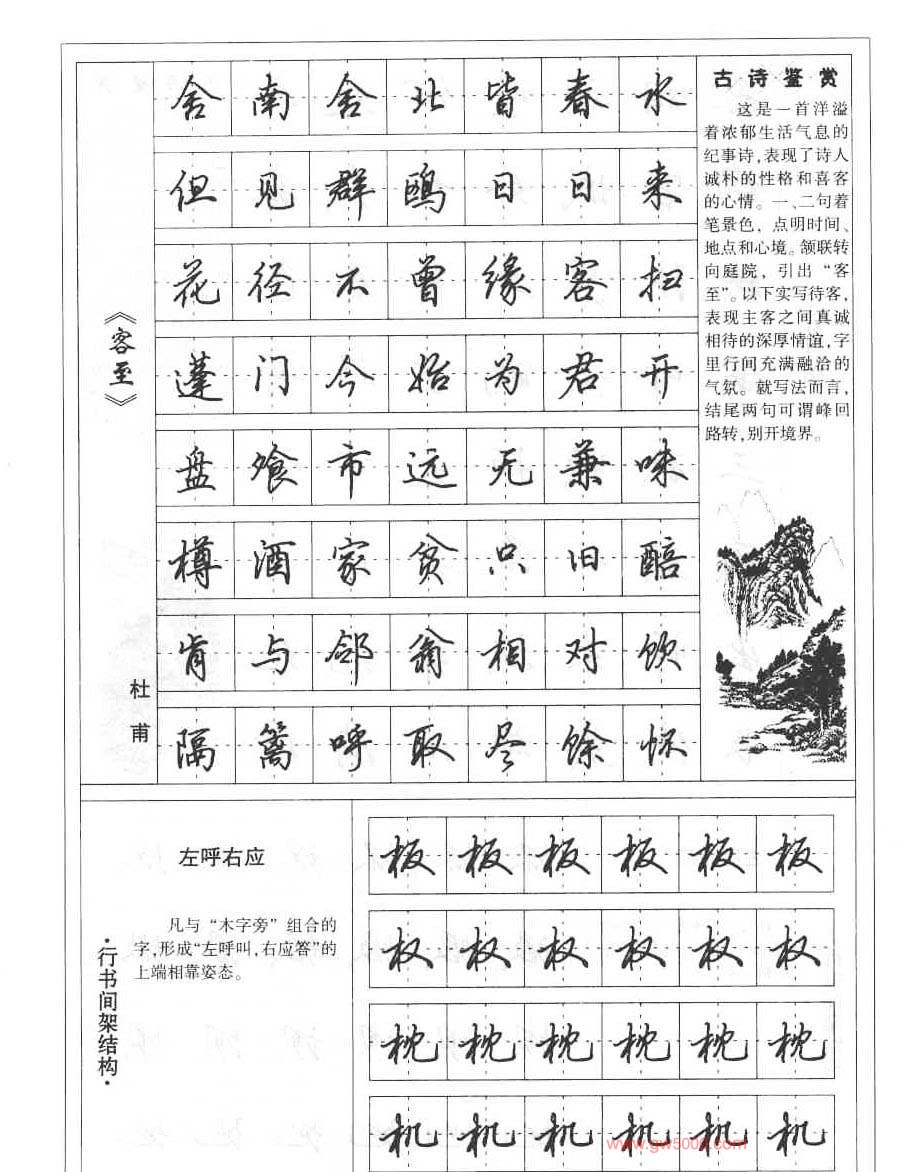 《客至》
杜甫
舍南舍北皆春水
但见群鸥日日来
花径不曾缘客扫
蓬门今始为君开
盘飧市远无兼味
樽酒家贫只旧醅
肯与邻翁相对饮
隔篱呼取尽馀杯
古诗鉴赏
这是一首洋溢
着浓郁生活气息的
纪事诗,表现了诗人
诚朴的性格和喜客
的心情。一、二句着
笔景色，点明时间、
地点和心境。颔联转
向庭院，引出“客
至”。以下实写待客,
表现主客之间真诚
相待的深厚情谊,字
里行间充满融洽的
气氛。就写法而言,
结尾两句可谓峰回
路转,别开境界。
·行书间架结构·
左呼右应
凡与“木字旁”组合的
字,形成“左呼叫,右应答”的
上端相靠姿态。
板板板板板板
权权权权权权
枕枕枕枕枕枕
机机机机机机